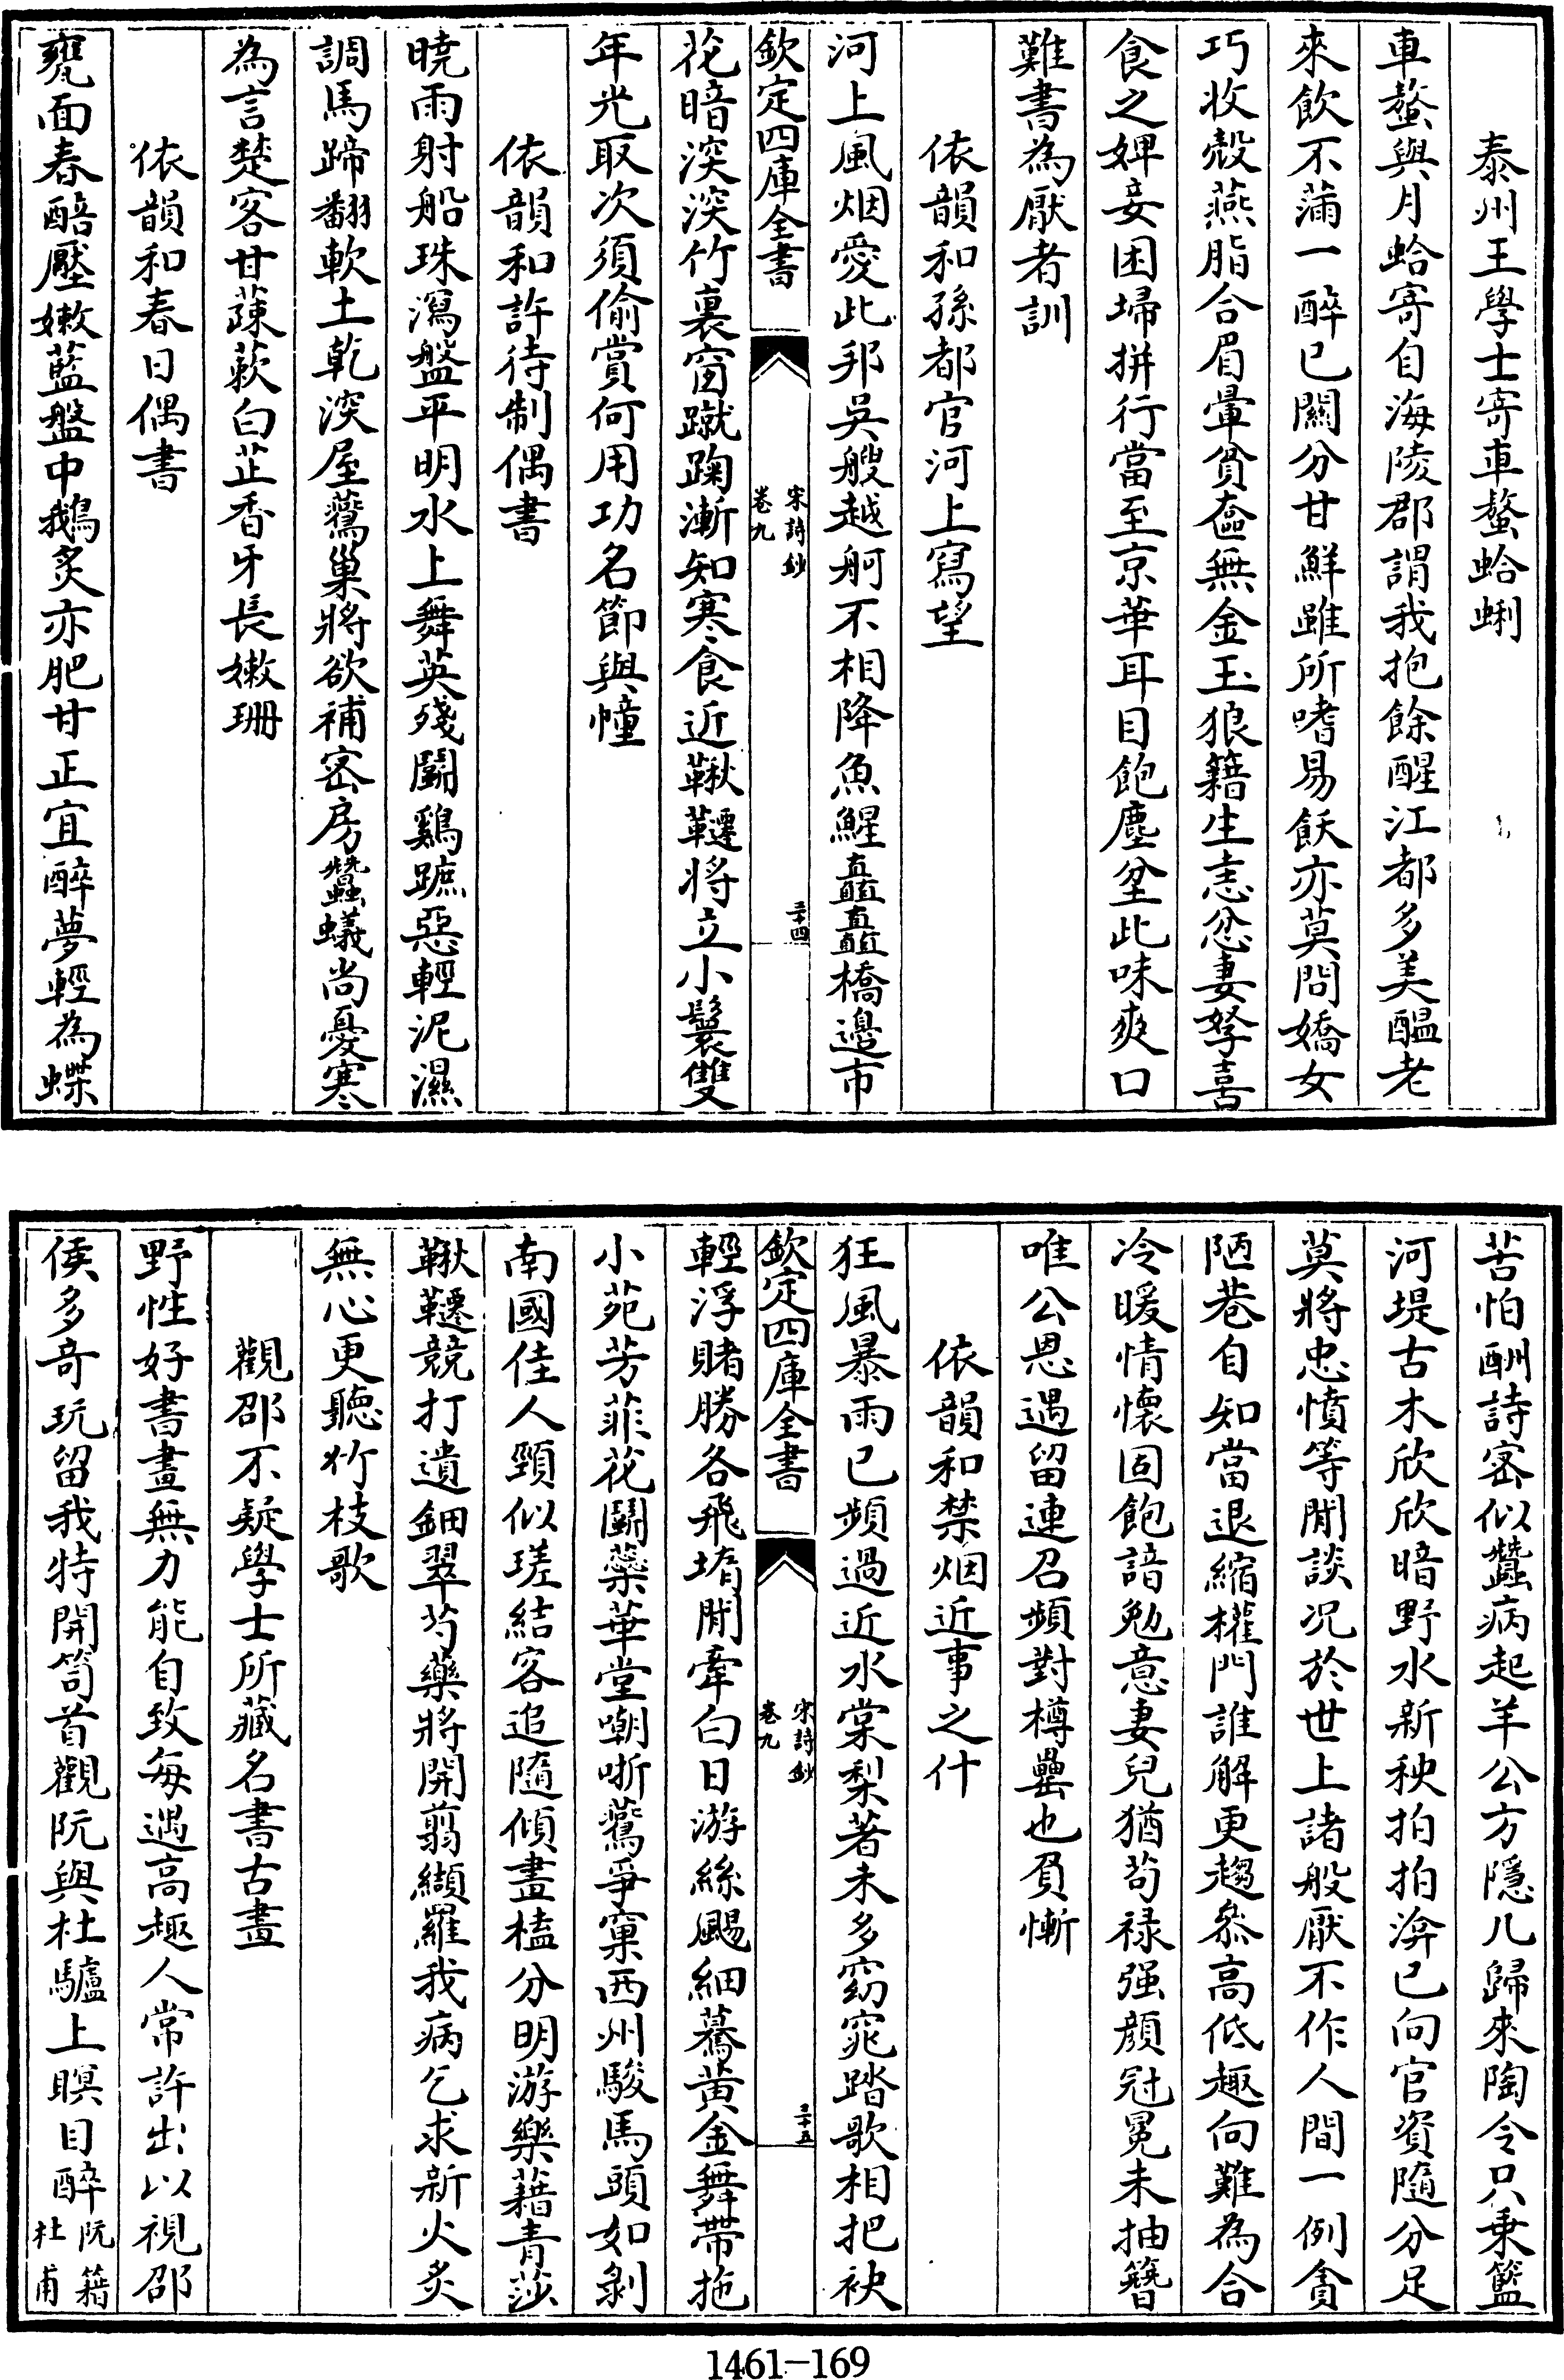 泰州王學士寄車螯蛤蜊
車螯與月蛤寄自海陵郡謂我抱餘酲江都多美醖老
來飲不滿一醉已關分甘鮮雖所嗜易飫亦莫問嬌女
巧收殼燕脂合眉暈貧奩無金玉狼籍生恚忿妻孥喜
食之婢妾困埽拚行當至京華耳目飽塵坌此味爽口
難書為厭者訓
依韻和孫都官河上寫望
河上風烟愛此邦吳艘越舸不相降魚鯹矗矗橋邊市
欽定四庫全書
宋詩鈔
卷九
三十四
花暗深深竹裏窗蹴踘漸知寒食近鞦韆將立小鬟雙
年光取次須偷賞何用功名節與幢
依韻和許待制偶書
曉雨射船珠瀉盤平明水上舞英殘鬭鷄蹠惡輕泥濕
調馬蹄翻軟土乾深屋鷰巢將欲補密房蠶蟻尚憂寒
為言楚客甘蔬蔌白芷香牙長嫩珊
依韻和春日偶書
甕面春醅壓嫩藍盤中鵝炙亦肥甘正宜醉夢輕為蝶
苦怕酬詩密似蠶病起羊公方隱几歸來陶令只乗籃
河堤古木欣欣暗野水新秧拍拍渰已向官資隨分足
莫將忠憤等閒談况於世上諸般厭不作人間一例貪
陋巷自知當退縮權門誰解更趨叅高低趣向難為合
冷暖情懷固飽諳勉意妻兒猶苟禄强顔冠冕未抽簪
唯公恩遇留連召頻對樽罍也負慚
依韻和禁烟近事之什
狂風暴雨已頻過近水棠梨著未多窈窕踏歌相把袂
欽定四庫全書
宋詩鈔
卷九
三十五
輕浮賭勝各飛堶閒牽白日游絲颺細蓦黄金舞帶拖
小苑芳菲花鬭蘂華堂嘲哳鷰爭窠西州駿馬頭如剝
南國佳人頸似瑳結客追隨傾畫榼分明游樂藉青莎
鞦韆競打遺鈿翠芍藥將開翦纈羅我病乞求新火炙
無心更聽竹枝歌
觀邵不疑學士所藏名書古畫
野性好書畫無力能自致每遇高趣人常許出以視邵
侯多奇玩留我特開笥首觀阮與杜驢上瞑目醉阮籍杜甫
1461—169